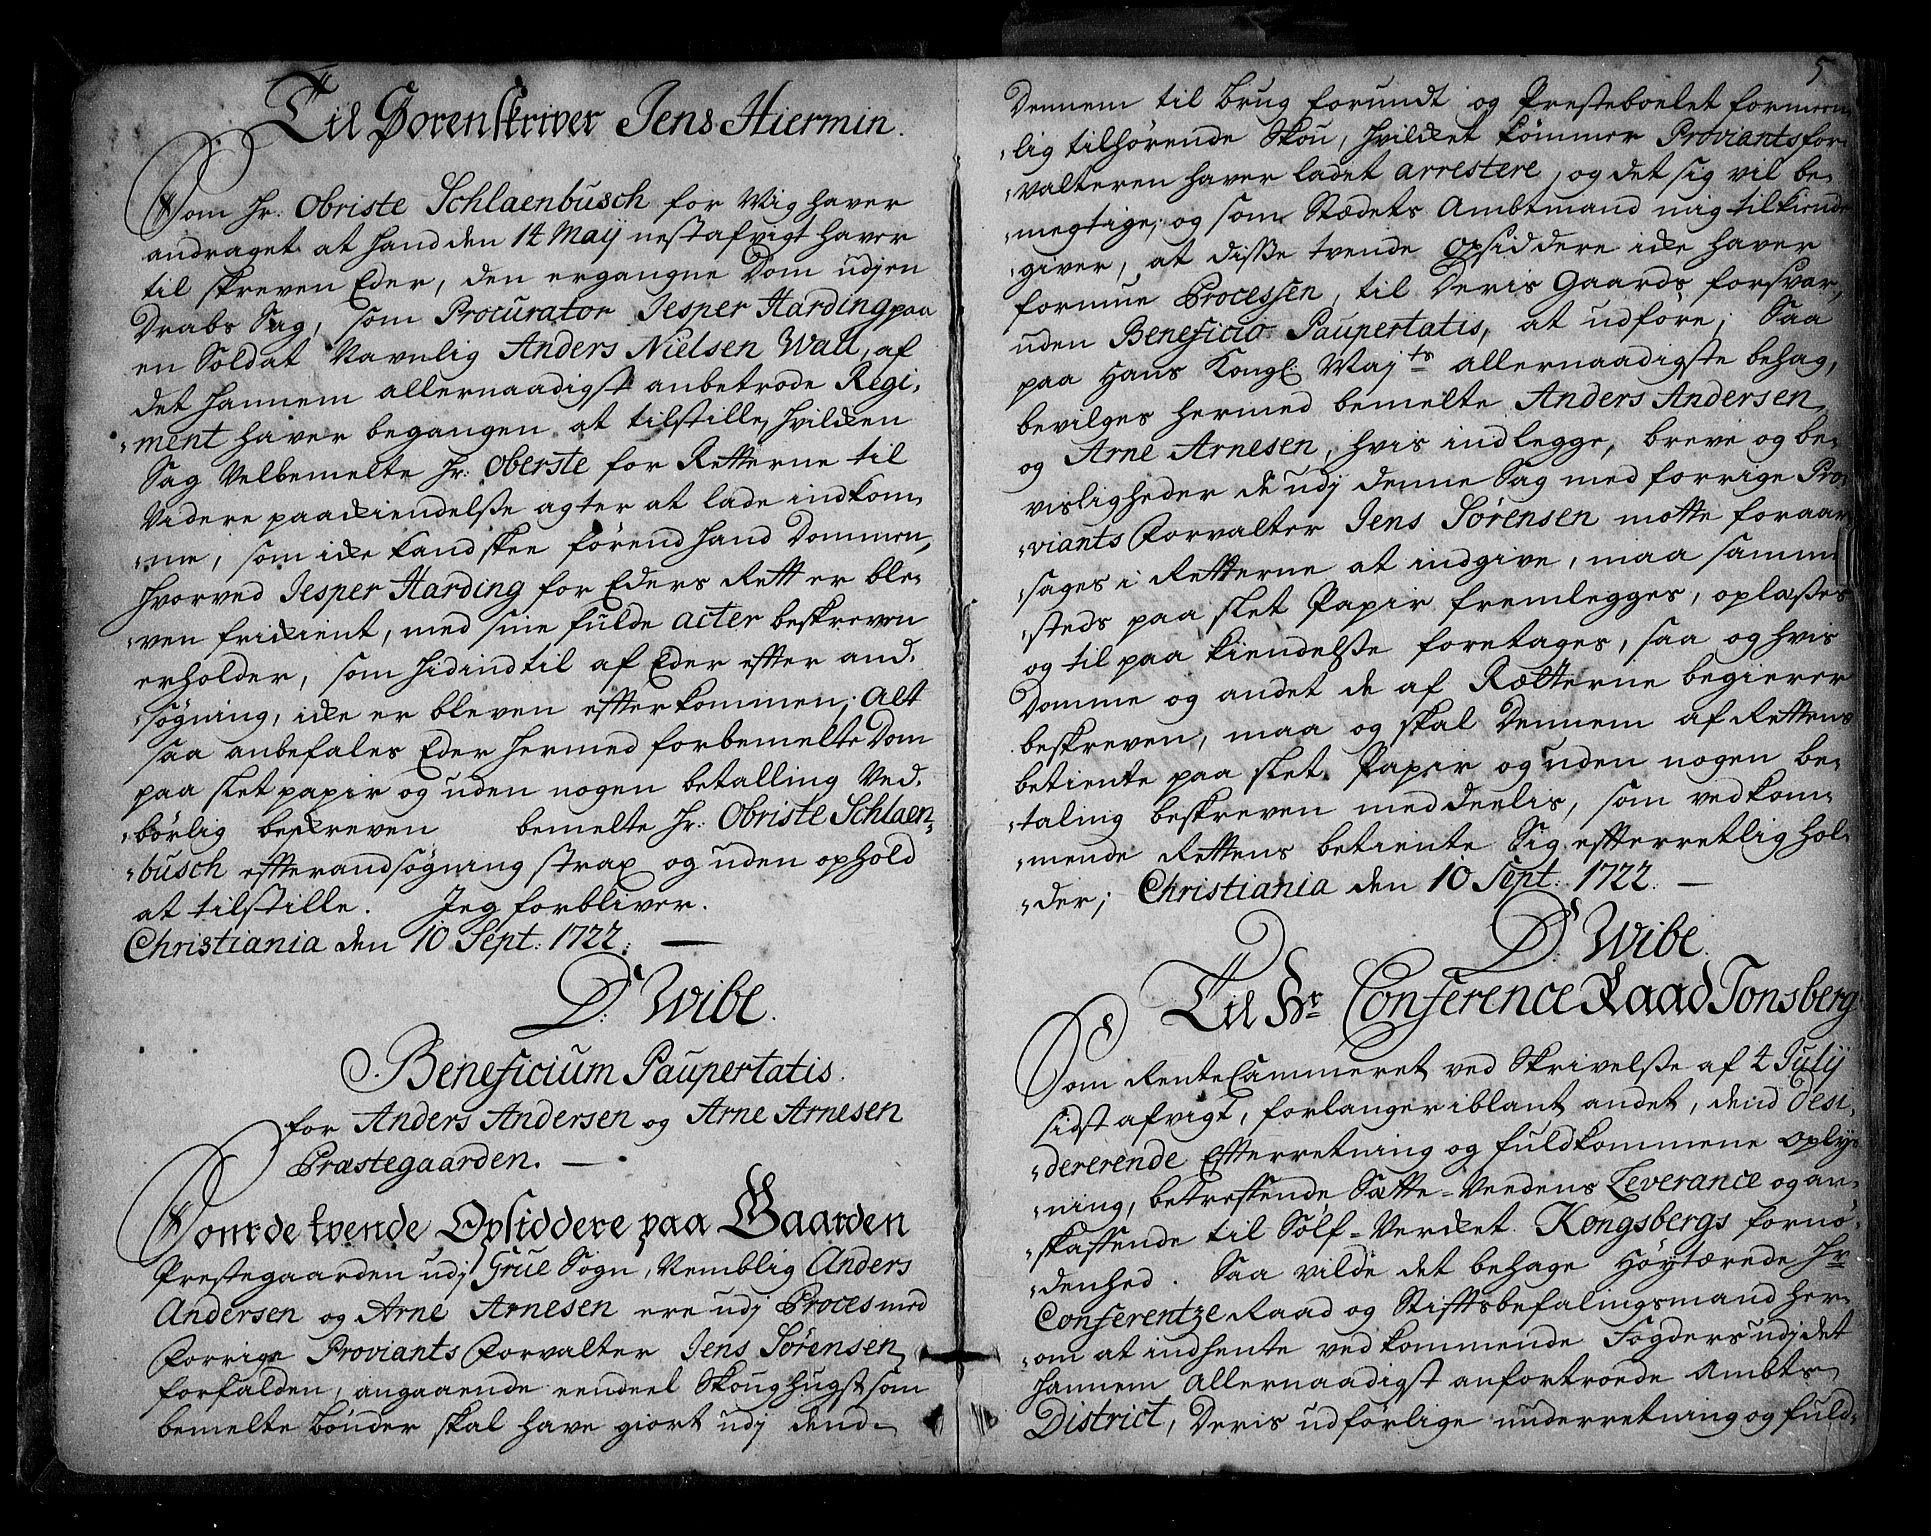 Til Sorenskriver Jens Hiermin.
Som Hr: Obriste Schlaenbusch for Mig haver
andraget at hand den 14 Maij nestafvigt haver
til skreven Eder, den ergangne Dom udj en
Drabs Sag, som Procurator Jesper Harding paa
en Soldat Navnlig Anders Nielsen Wall, af
det hannem allernaadigst anbetrode Regi-
-ment haver begangen at tilstille, hvilken
Sag Velbemelte Hr: Oberste for Retterne til
Videre paakiendelsse agter at lade indkom-
-me, som icke kand skee førend hand Dommen,
hvorved Jesper Harding for Eders Rett er ble-
-ven frikient, med sine fulde acter beskreven
erholder, som hidindtil af Eder effter and-
-søgning, icke er bleven effterkommen; Alt
saa anbefales Eder hermed forbemelte Dom
paa slet papir og uden nogen betalling Ved-
-børlig beskreven bemelte Hr: Obriste Schlaen-
-busch effter andsøgning strax og uden ophold
at tilstille. Jeg forbliver.
Christiania den 10 Sept: 1722.
D: Wibe.
Beneficium Paupertatis.
for Anders Andersen og Arne Arnesen
Præstegaarden.
Som de tvende Opsiddere paa Gaarden
Prestegaarden udj Grue Sogn, Nemblig Anders
Andersen og Arne Arnesen ere udj Proces med
Forrige Proviants Forvalter Jens Sørensen,
forfalden, angaaende eendeel Skoug hugst som
bemelte Bønder skal have giort udj dend
5
Dennem til Brug forundt og Presteboelet formeen-
-lig tilhørende Skou, hvilket tømmer Proviantsfor-
-valteren haver ladet arrestere, og det sig vil be-
-megtige; og som Stædets Ambtmand mig tilkiende
-giver, at disse tvende opsiddere icke haver
formue Processen, til Deris Gaards forsvar,
uden Beneficio Paupertatis, at udføre; Saa
paa Hans Kongl: Maj:ts allernaadigste behag,
bevilges hermed bemelte Anders Andersen
og Arne Arnesen, hvis indlegge, breve og be-
visligheder de udj denne Sag med forrige Pro-
-viants Forvalter Jens Sørensen motte foraar-
-sages i Retterne at indgive, maa samme-
-steds paa slet Papir fremlegges, oplæsses
og til paa kiendelsse foretages, saa og hvis
Domme og andet de af Rætterne begierer
beskreven, maa og skal Dennem af Rettens
betiente paa slet Papir og uden nogen be-
-taling beskreven meddeelis, som vedkom-
-mende Rettens betiente Sig effterretlig hol-
-der; Christiania den 10 Sept: 1722.
D: Wibe.
Til Hr Conference Raad Tonsberg
Som Rente Cammeret ved Skrivelsse af 4 Julij
sidst afvigt, forlanger iblant andet, dend desi-
-dererende Effterretning og fuldkommene oplys-
-ning, betreffende Sætte-Veedens Leverance og an-
-skaffende til Sølf-Verket Kongsbergs fornø-
-denhed. Saa vilde det behage Høytærede Hr
Conferentze Raad og Stifftsbefalingsmand her-
-om at indhente vedkommende Fogders udj det
hannem Allernaadigst anfortroede Ambts
District, Deris udførlige underretning og fuld-